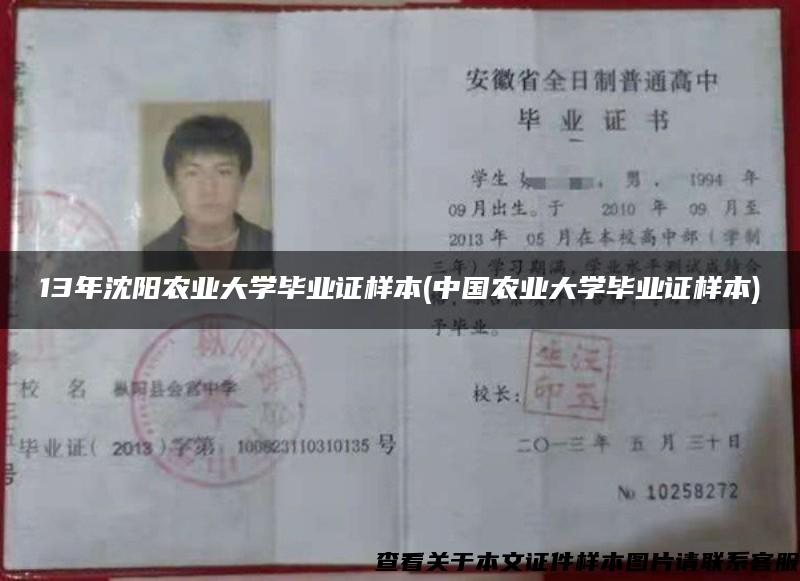 安徽省全日制普通高中
毕业证书
学生 ，男，1994 年
09月出生。于 2010 年 09 月至
2013年 05 月在本校高中部（学制
三年）学习期满，学业水平测试成绩合
13年沈阳农业大学毕业证样本(中国农业大学毕业证样本)
予毕业。
校 名 枞阳县会宫中学
校长：
汪五
生印
毕业证( 2013 )字第 100823110310135 号
二〇一三 年 五 月 三十 日
№ 10258272
查看关于本文证件样本图片请联系客服